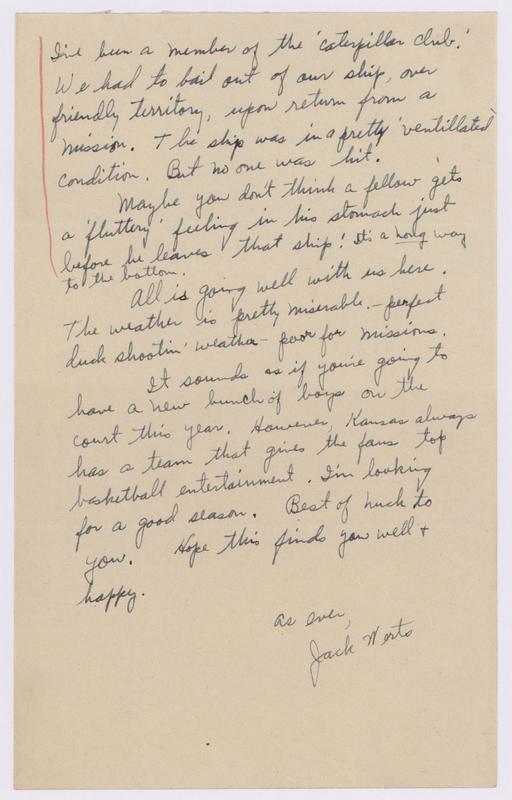 I've been a member of the 'caterpillar club'.
We had to bail out of our ship, over
friendly territory, upon return from a
mission. The ship was in a pretty 'ventillated'
condition. But no one was hit.
Maybe you don't think a fellow gets
a 'fluttery' feeling in his stomach just
before he leaves that ship! It's a long way
to the bottom.
All is going well with us here.
The weather is pretty miserable - perfect
duck shootin' weather - poor for missions.
It sounds as if you're going to
have a new bunch of boys on the
court this year. However, Kansas always
has a team that gives the fans top
basketball entertainment. I'm looking
for a good season. Best of luck to
you. Hope this finds you well +
happy.
As ever,
Jack Werts